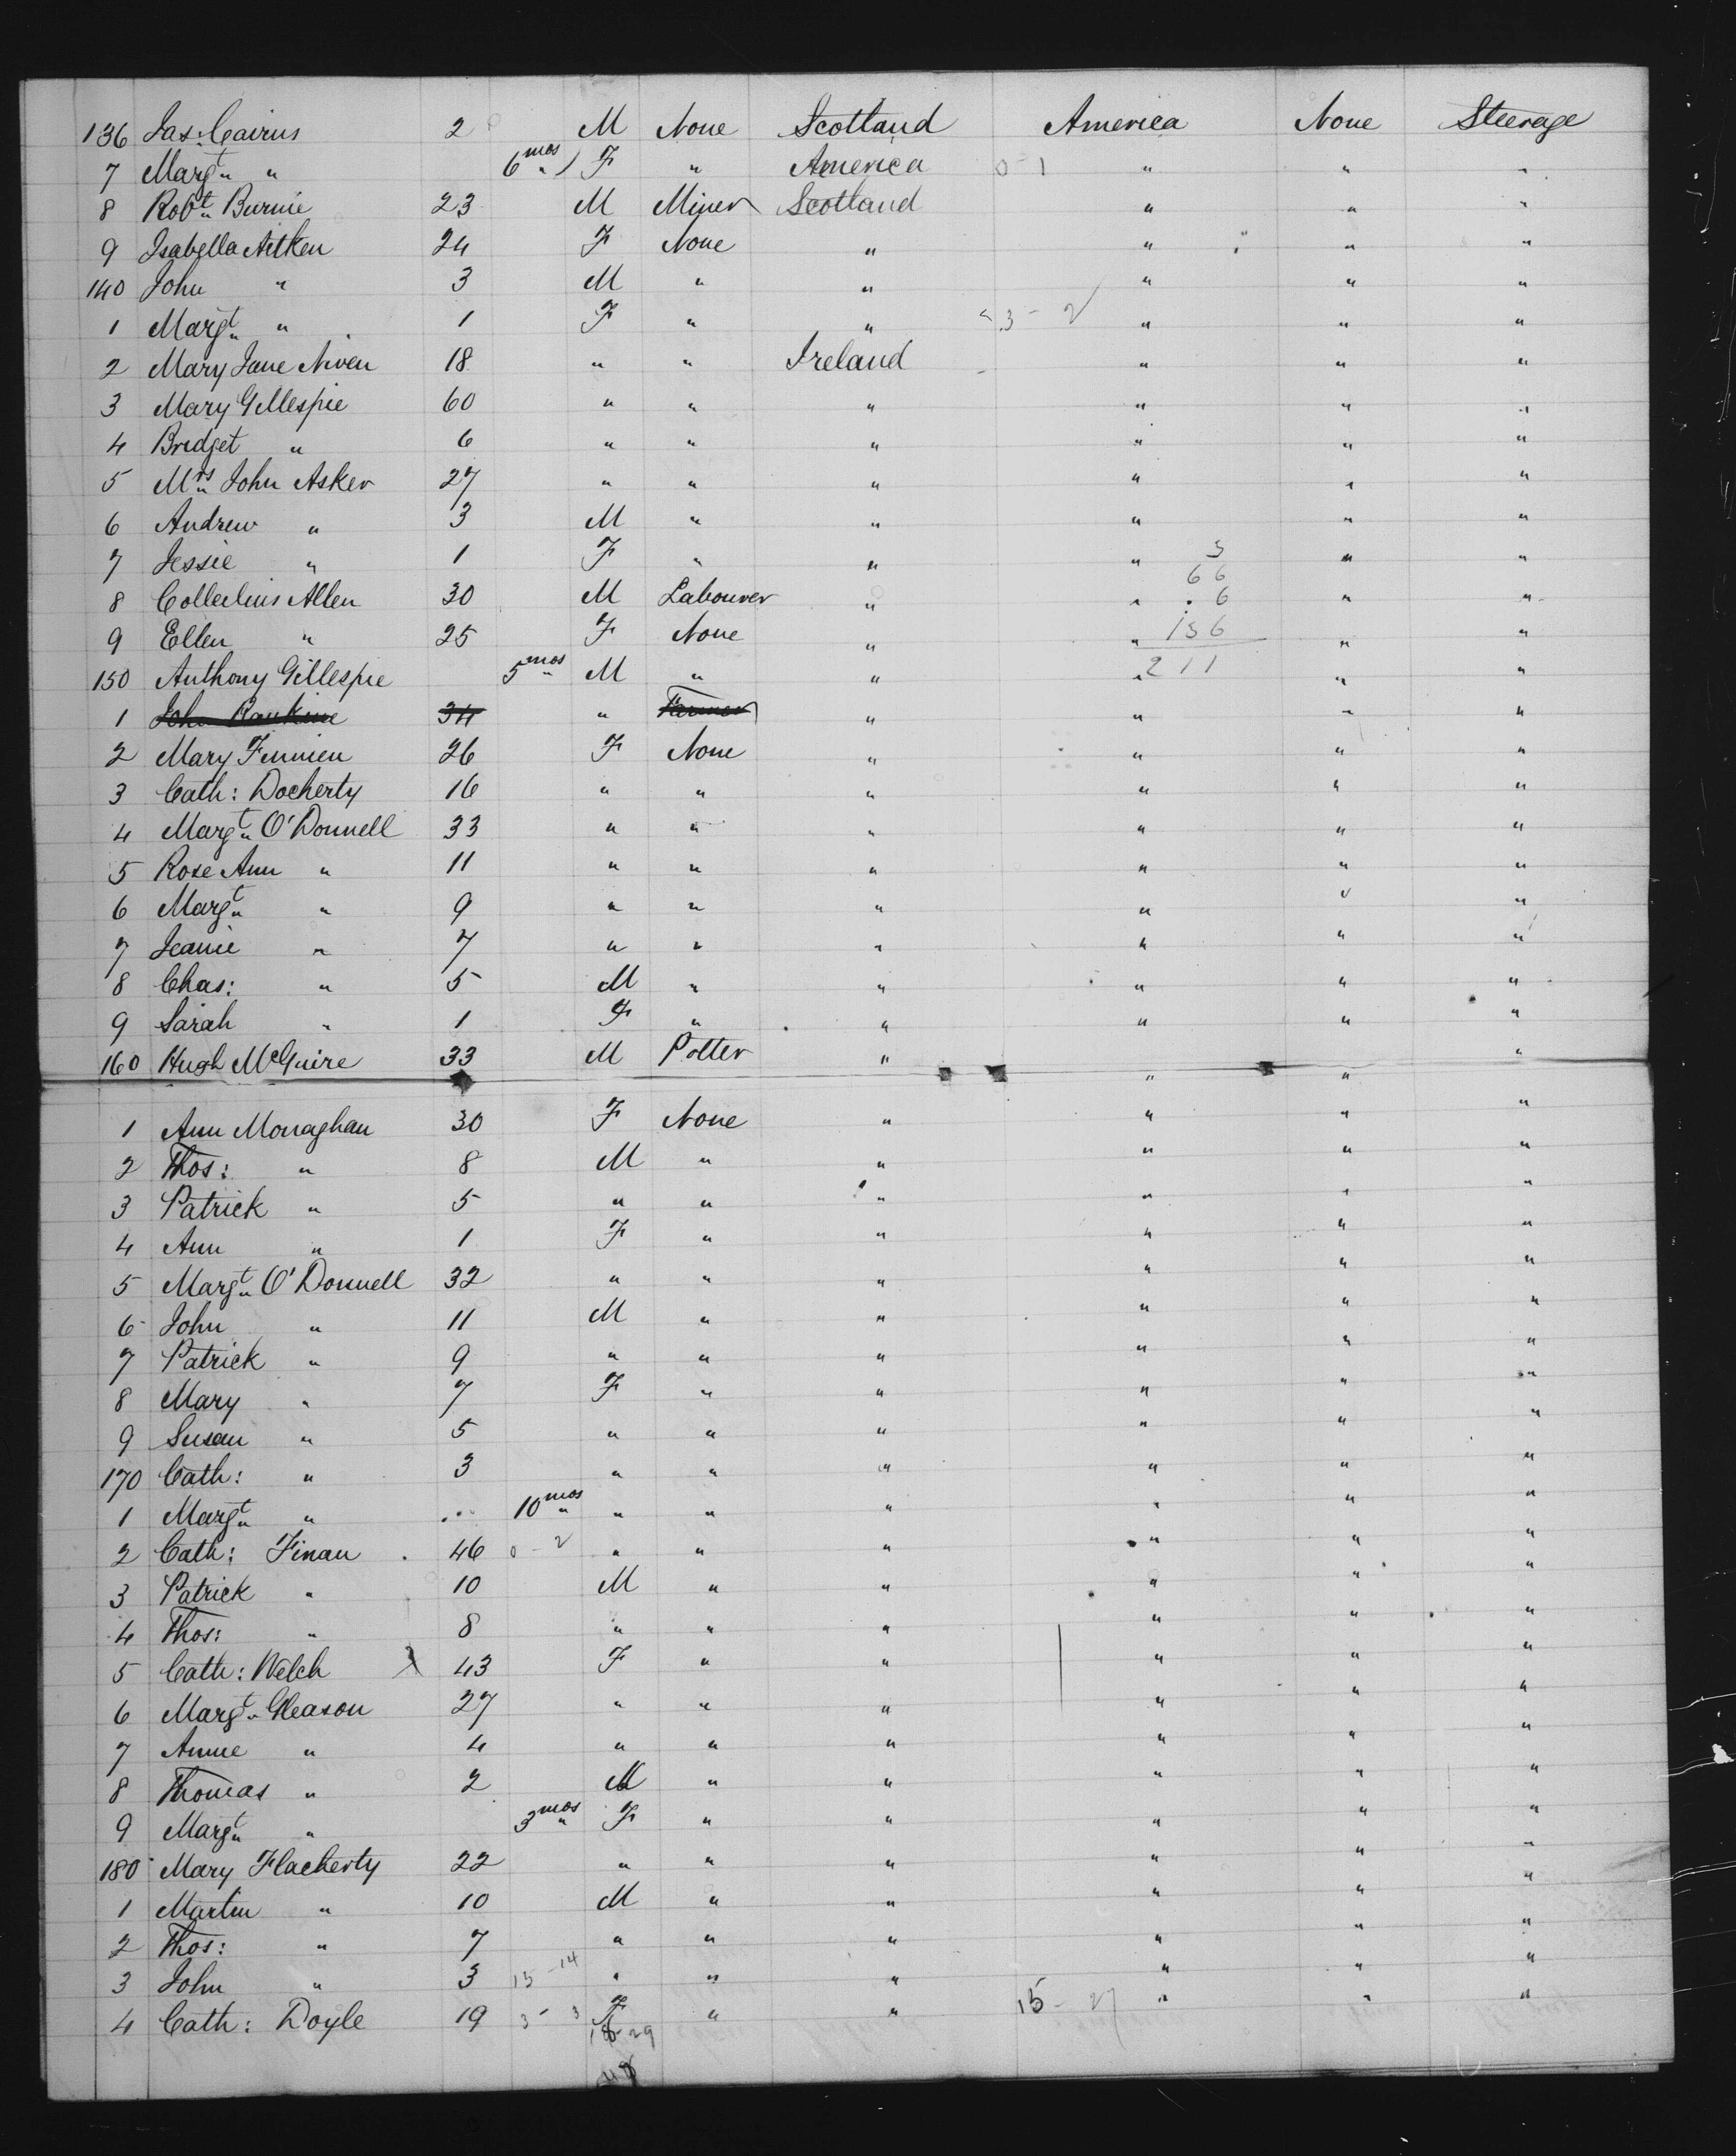 136 Jas: Cairns 2 M None Scotland America None Steerage
7 Margt " 6 mos F " America 0-1 " " "
8 Robt Burnie 23 M Miner Scotland " " "
9 Isabella Aitken 24 F None " " " "
140 John " 3 M " " " " "
1 Margt " 1 F " " 3 - 2 " " "
2 Mary Jane Niven 18 " " Ireland " " "
3 Mary Gillespie 60 " " " " " "
4 Bridget " 6 " " " " " "
5 Mrs John Asker 27 " " " " " "
6 Andrew " 3 M " " " " "
7 Jessie " 1 F " " " 3 " "
66
8 Allen 30 M Labourer " " 6 " "
9 Ellen " 25 F None " " 136 " "
150 Anthony Gillespie 5 mos M " " " 211 " "
1 John Rankine 34 " Farmer " " " "
2 Mary Finnien 26 F None " " " "
3 Cath: Docherty 16 " " " " " "
4 Margt O'Donnell 33 " " " " " "
5 Rose Ann " 11 " " " " " "
6 Margt " 9 " " " " " "
7 Jeanie " 7 " " " " " "
8 Chas: " 5 M " " " " "
9 Sarah " 1 F " " " " "
160 Hugh McGuire 33 M Potter " " " "
1 Ann Monaghan 30 F None " " " "
2 Thos: " 8 M " " " " "
3 Patrick " 5 " " " " " "
4 Ann " 1 F " " " " "
5 Margt O'Donnell 32 " " " " " "
6 John " 11 M " " " " "
7 Patrick " 9 " " " " " "
8 Mary " 7 F " " " " "
9 Susan " 5 " " " " " "
170 Cath: " 3 " " " " " "
1 Margt " ... 10 mos " " " " " "
2 Cath: Finan 46 0 - 2 " " " " " "
3 Patrick " 10 M " " " " "
4 Thos: " 8 " " " " " "
5 Cath: Welch X 43 F " " " " "
6 Margt Gleason 27 " " " " " "
7 Annie " 4 " " " " " "
8 Thomas " 2 M " " " " "
9 Margt " 3 mos F " " " " "
180 Mary Flacherty 22 " " " " " "
1 Martin " 10 M " " " " "
2 Thos: " 7 " " " " " "
3 John " 3 15 - 14 " " " " " "
4 Cath: Doyle 19 3 - 3 F " " 15 - 27 " " "
18-29